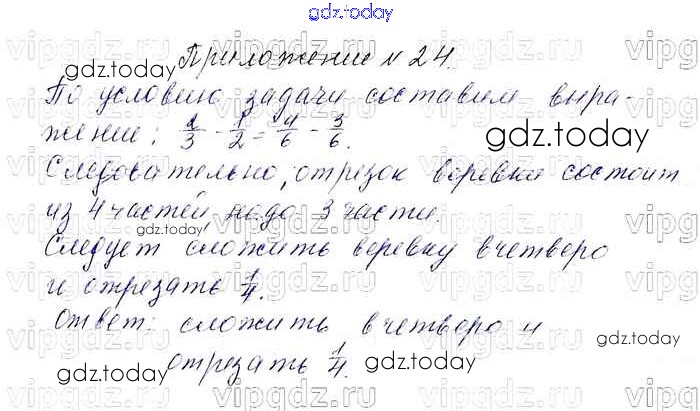 gdz.today
Приложение № 24.
По условию задачи составим выра-
жение: 2/3 - 1/2 = 4/6 - 3/6.
Следовательно, отрезок веревки состоит
из 4 частей, надо 3 части.
Следует сложить веревку вчетверо
и отрезать 1/4.
Ответ: сложить вчетверо и
отрезать 1/4.
gdz.today
gdz.today
gdz.today
gdz.today
gdz.today
gdz.today
vipgdz.ru